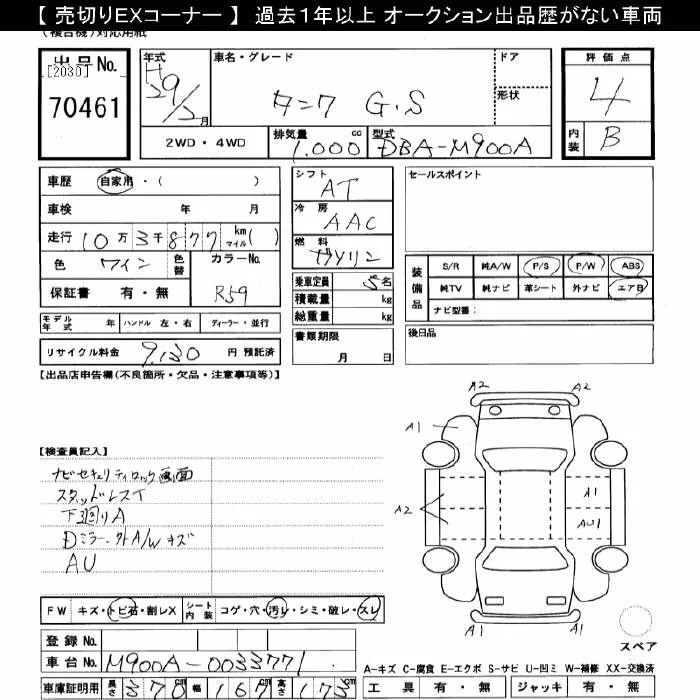 【 売切りEXコーナー 】 過去１年以上 オークション出品歴がない車両
(複合機)対応用紙
出品No.
[2030]
70461
年式 H29/2月
車名・グレード
タンク G.S
ドア
形状
2WD・4WD
排気量 1.000 cc
型式 DBA-M900A
評価点
4
内装 B
車歴 自家用・( )
車検 年 月
走行 10万3千877 km マイル( )
色 ワイン 色替
カラーNo. R59
保証書 有・無
シフト AT
冷房 AAC
燃料 ガソリン
乗車定員 5名
積載量 kg
総重量 kg
書類期限
月 日
セールスポイント
装備品
S/R 純A/W P/S P/W ABS
純TV 純ナビ 革シート 外ナビ エアB
ナビ型番：
後日品
モデル年式 年 ハンドル 左・右 ディーラー・並行
リサイクル料金 9,130 円 預託済
【出品店申告欄(不良箇所・欠品・注意事項等)】
【検査員記入】
ナビセキュリティロック画面
スタッドレスT
下回りA
Dミラー.外A/W キズ
AU
A2 A2
A1
A1
A2
AU1
A1 A1
FW キズ・トビ石・割レX シート内装 コゲ・穴・汚レ・シミ・破レ・スレ
スペア
登録No.
車台No. M900A-0033771
車庫証明用 長さ 370cm 幅 167cm 高さ 173cm
A-キズ C-腐食 E-エクボ S-サビ U-凹ミ W-補修 XX-交換済
工具 有・無 ジャッキ 有・無